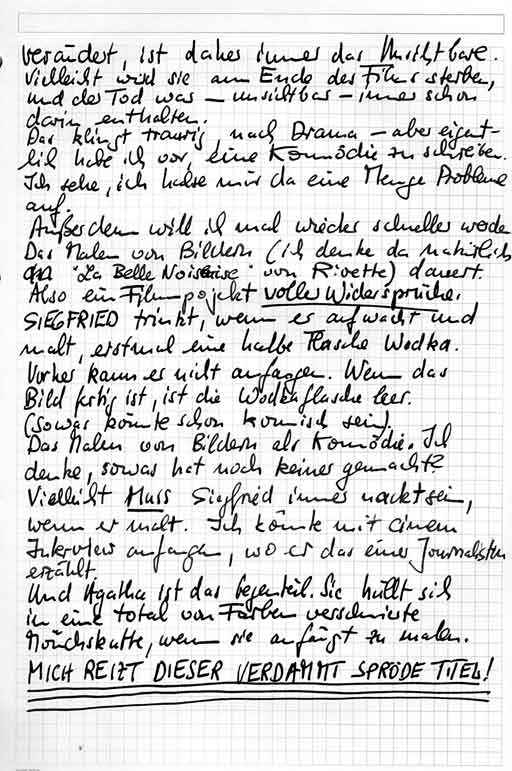 verändert, ist daher immer das Unsichtbare.
Vielleicht wird sie am Ende des Films sterben,
und der Tod war – unsichtbar – immer schon
darin enthalten.
Das klingt traurig, nach Drama – aber eigent-
lich habe ich vor, eine Komödie zu schreiben.
Ich sehe, ich halse mir da eine Menge Probleme
auf.
Außerdem will ich mal wieder schneller werden
Das Malen von Bildern (ich denke da natürlich
an "La Belle Noiseuse" von Rivette) dauert.
Also ein Filmpojekt voller Widersprüche.
SIEGFRIED trinkt, wenn er aufwacht und
malt, erstmal eine halbe Flasche Wodka.
Vorher kann er nicht anfangen. Wenn das
Bild fertig ist, ist die Wodkaflasche leer.
(Sowas könnte schon komisch sein).
Das Malen von Bildern als Komödie. Ich
denke, sowas hat noch keiner gemacht?
Vielleicht Muss Siegfried immer nackt sein,
wenn er malt. Ich könnte mit einem
Interview anfangen, wo er das einer Journalistin
erzählt.
Und Agatha ist das Gegenteil. Sie hüllt sich
in eine total von Farben verschmierte
Mönchskutte, wenn sie anfängt zu malen.
MICH REIZT DIESER VERDAMMT SPRÖDE TITEL!